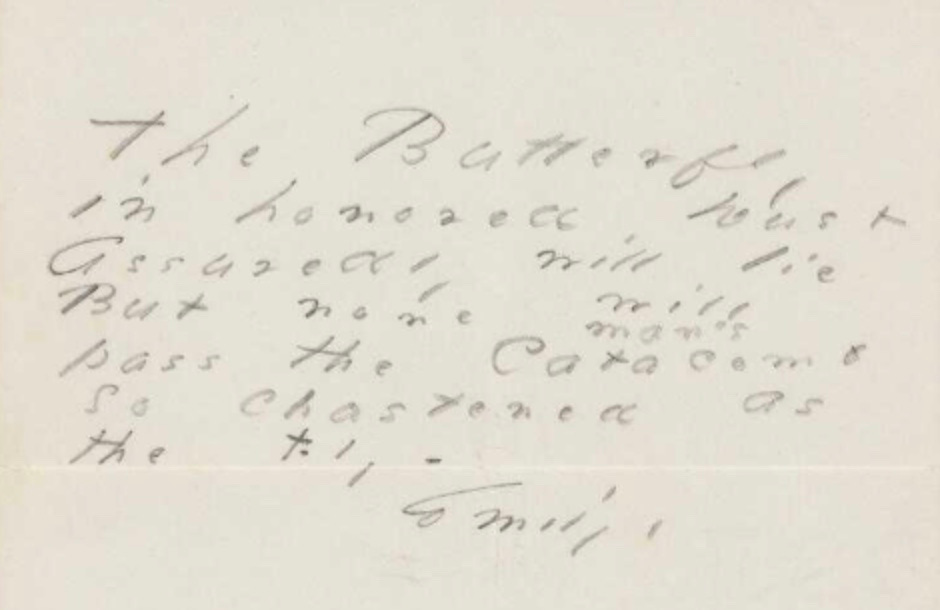 The Butterfly
in honored Dust
Assuredly will lie
But none will
man's
pass the Catacomb
So chastened as
the Fly -
Emily.